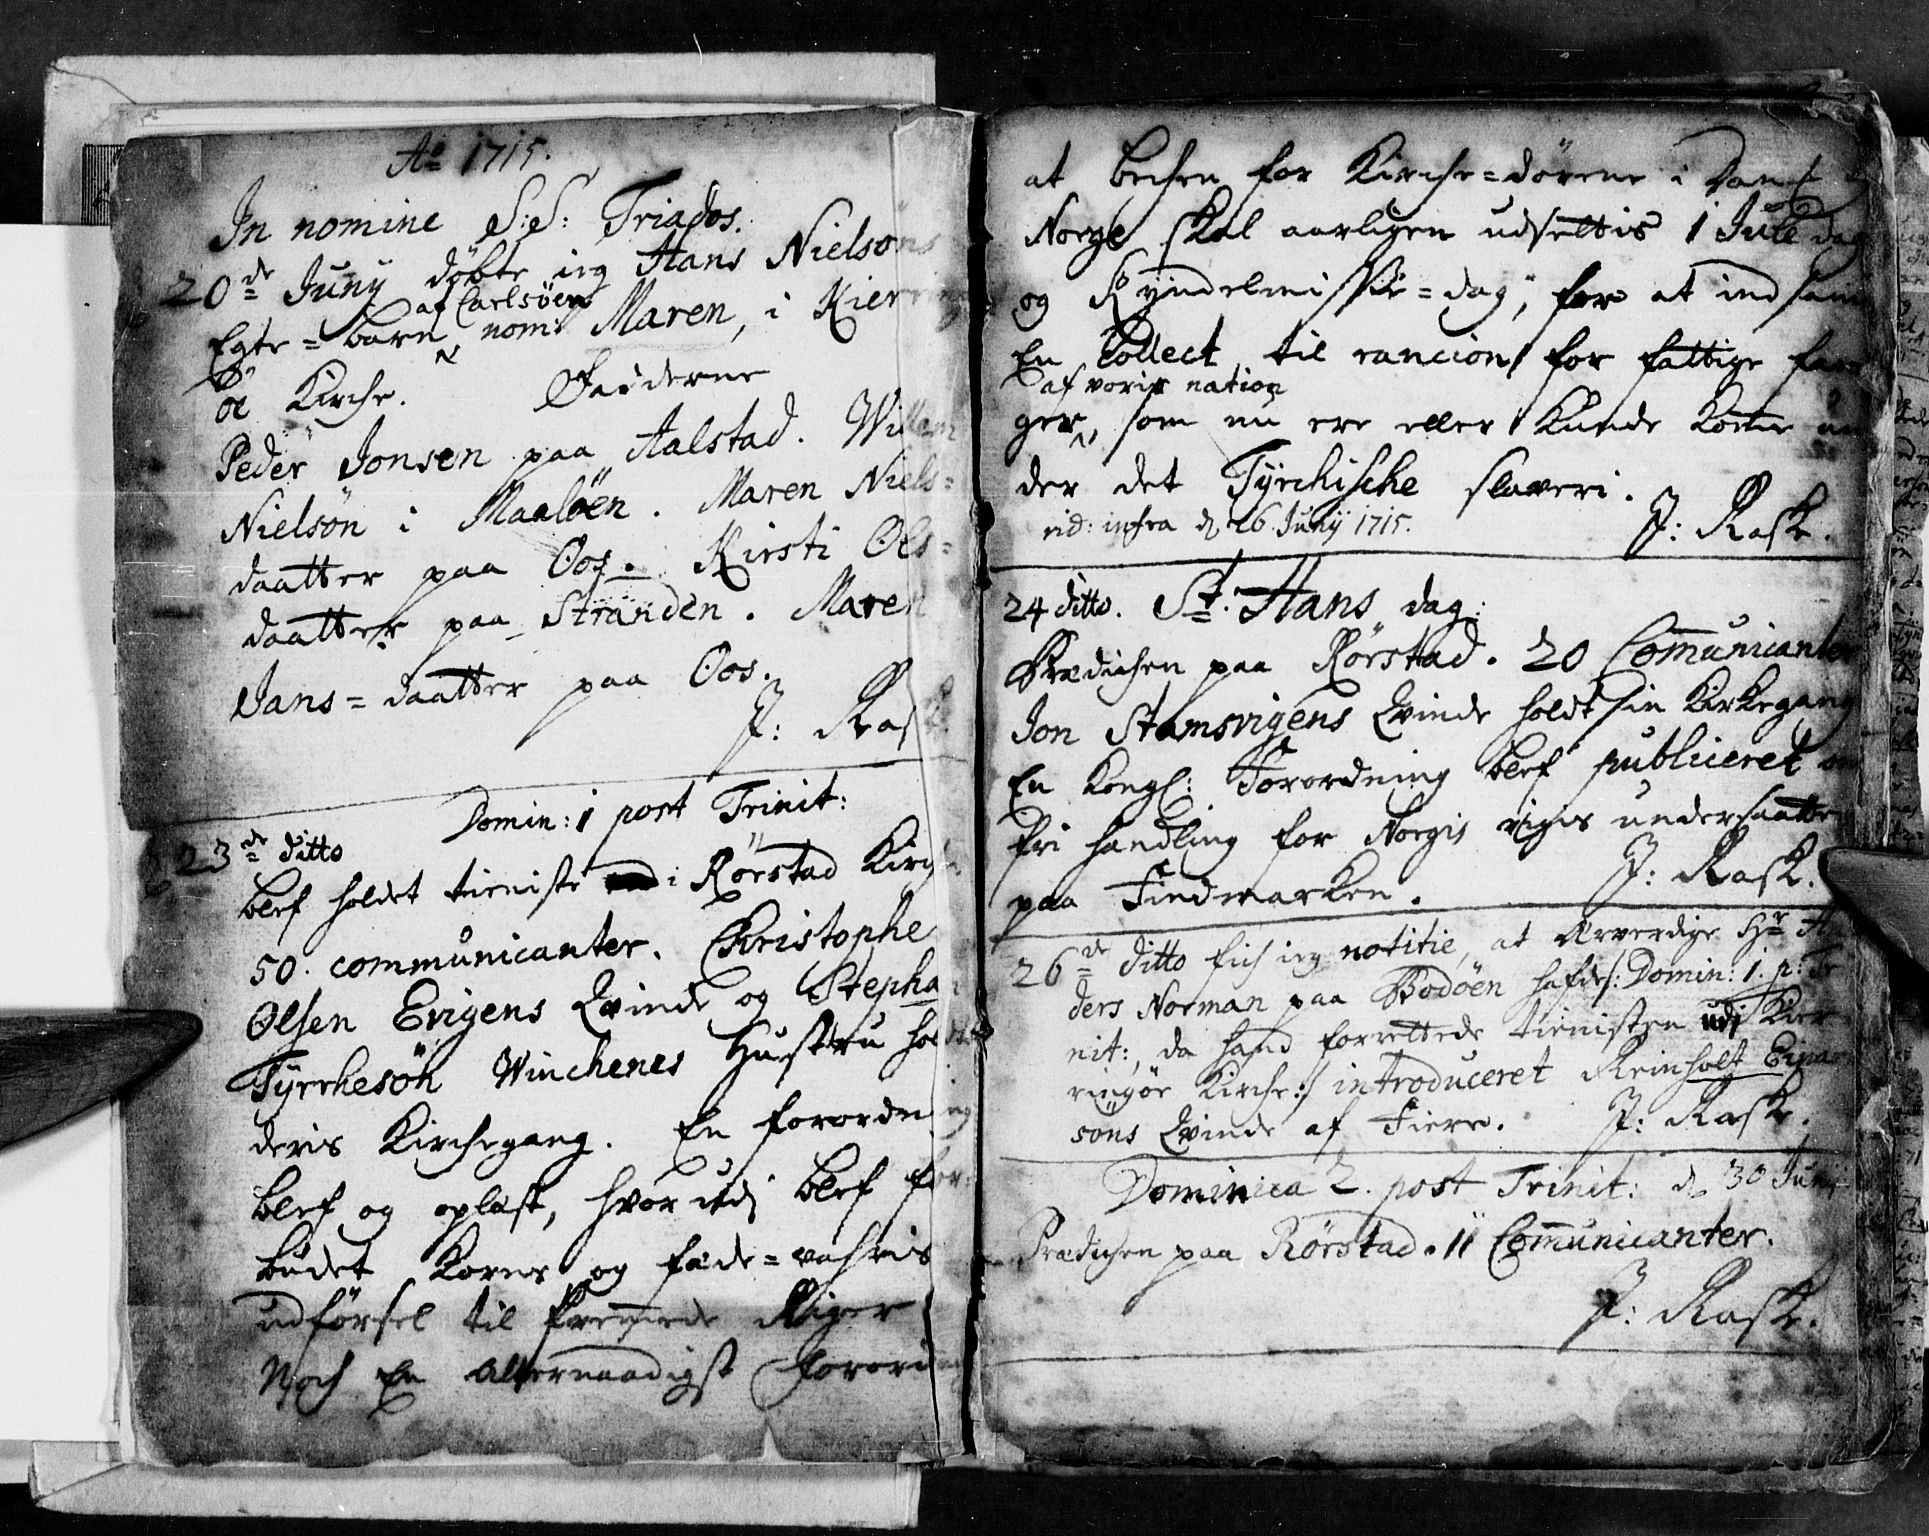 Ao 1715.
In nomine S:S: Triados.
20de Junij döbte ieg Hans Nielsöns
af Carlsöen
Egte=barn nom: Maren, i Kierring
öe Kirche. Fadderne
Peder Jonsen paa Aalstad. Willem
Nielsön i Maalöen. Maren Niels=
daatter paa Oos. Kirsti Ols=
daatter paa Stranden. Maren
Jans=daatter paa Oos.
J: Rask.
Domin: 1 post Trinit:
23de ditto
blef holdet tieniste i Rörstad Kirche
50. communicanter. Christopher
Olsen Evigens Qvinde og Stephan
Tyrrhesön Winchenes Hustru holdt
deris Kirchegang. En forordning
blef og oplæst, hvor udj blef for=
budet Korns og föde=vahris
udförsel til fremmede Riger
Noch En Allernaadigst Forordning
at bechen for Kirche=dörene i Danm: og
Norge skal aarligen udsettis 1 Jule dag
og Kyndelmisse=dag, for at indsamle
En Collect til rancion for fattige fan
af voris nation
ger, som nu ere eller kunde komme un
der det Tyrchische slaveri.
vid: infra d. 26 Junij 1715. J: Rask.
24 ditto. St: Hans dag:
Prædichen paa Rörstad. 20 Communicanter
Jon Stamsvigens Qvinde holdt sin Kirkegang
En Kongl: Forordning blef publiceret om
fri handling for Norgis rigis undersaatter
paa Findmarken. J: Rask.
26de ditto fich ieg notitie, at Ærverdige Hr An
ders Norman paa Bodöen hafde /: Domin: 1. p: Tri
nit:, da hand forrettede tienisten udj Kier
ringöe Kirche :/ introduceret Reinholt Einar
söns Qvinde af Fiere. J: Rask.
Dominica 2. post Trinit: d. 30 Junij
Prædichen paa Rörstad. 11 Communicanter.
J: Rask.